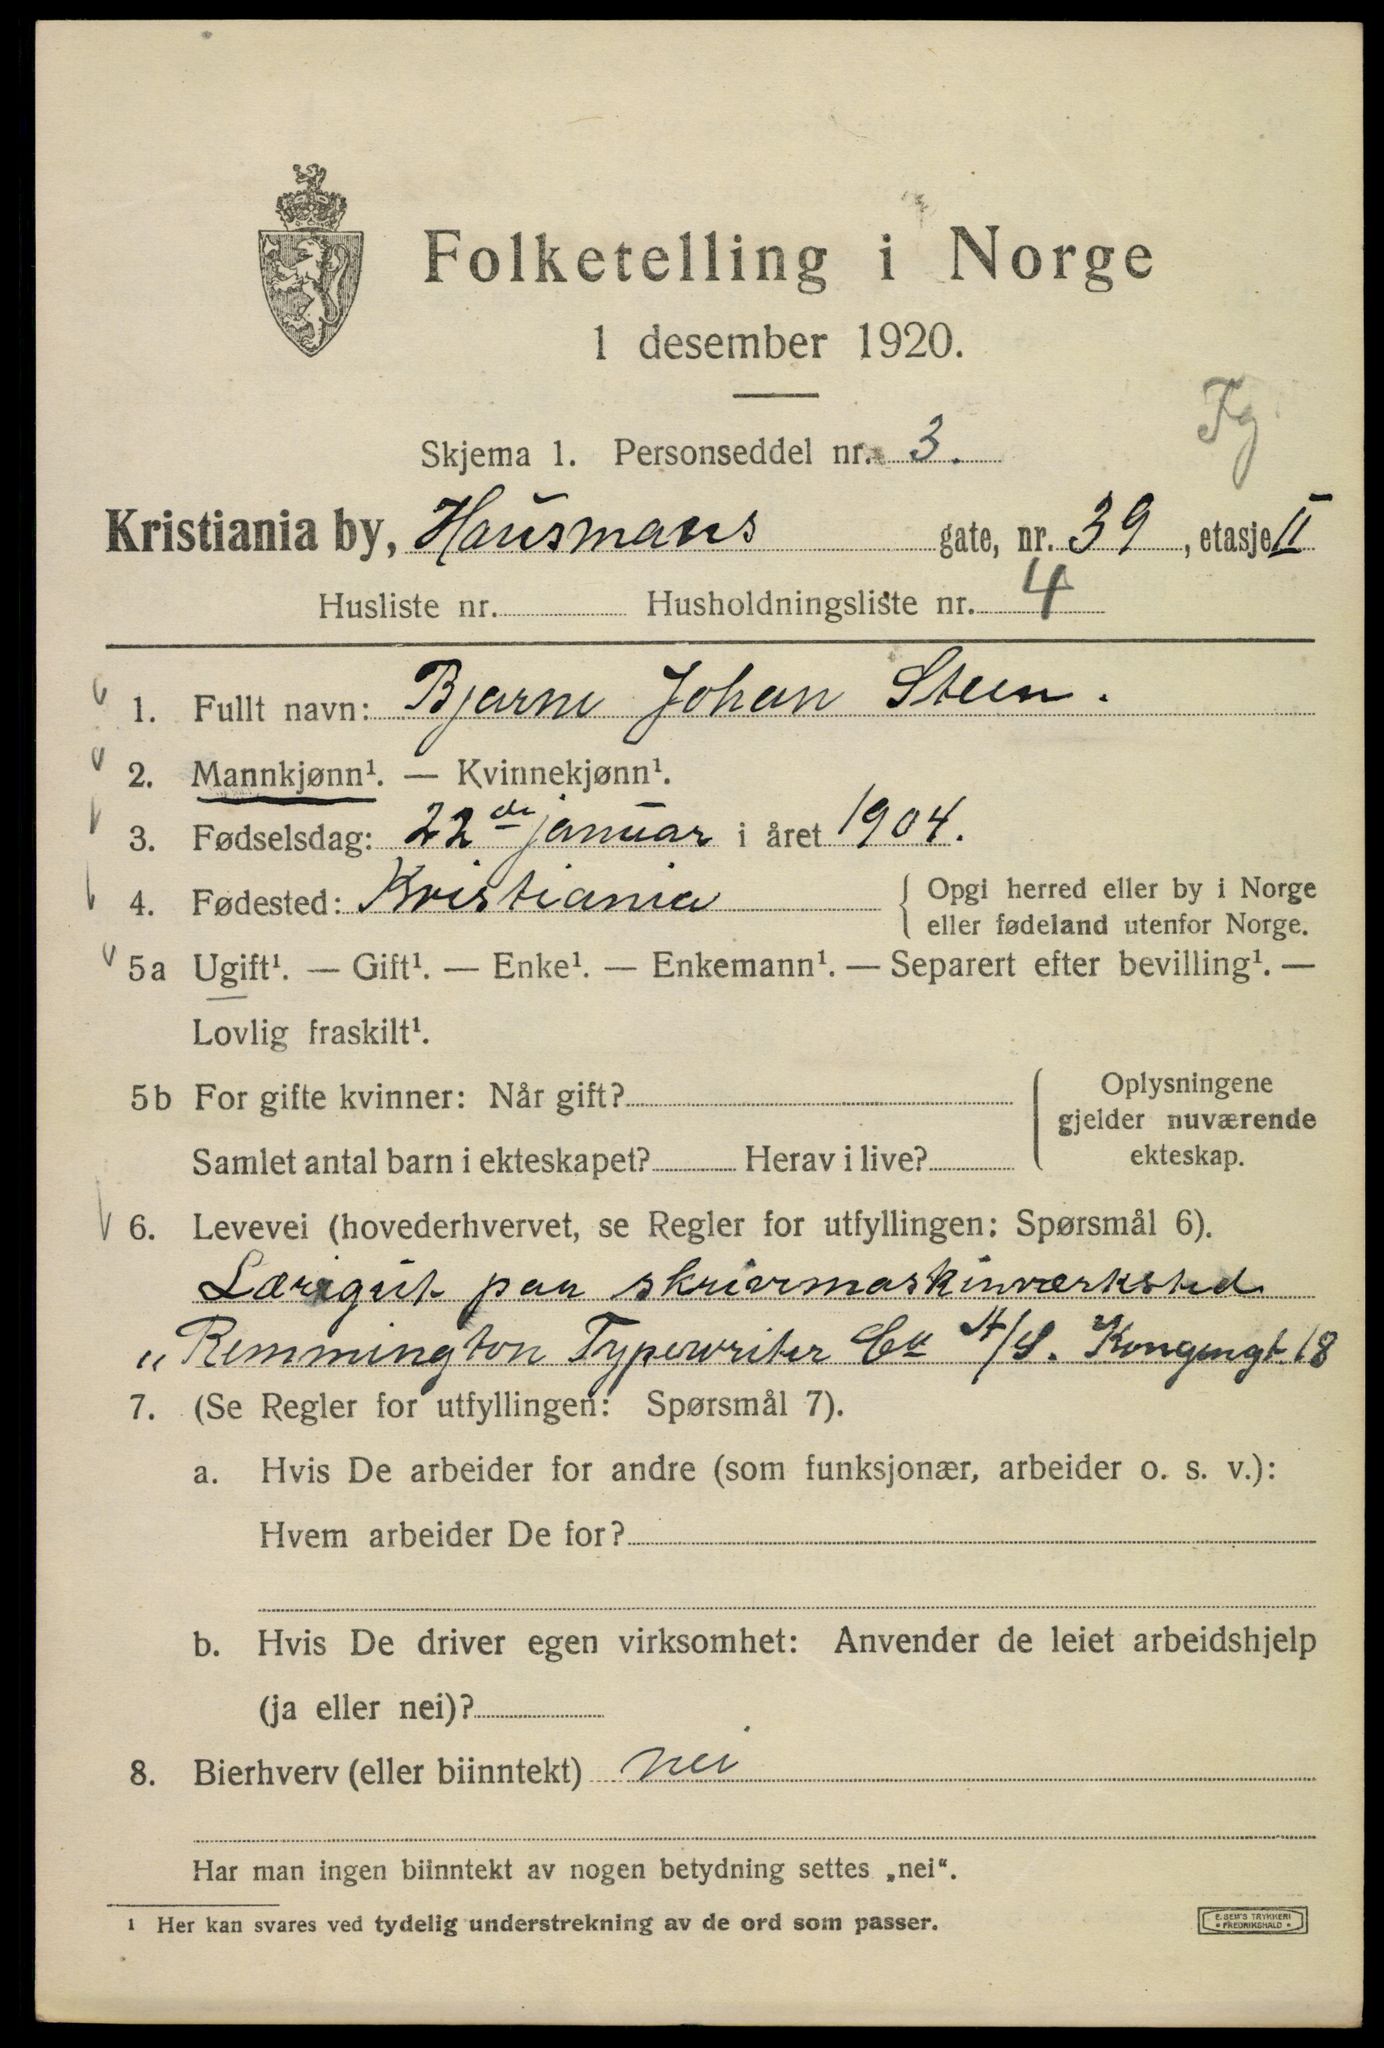 Folketelling i Norge
1 desember 1920.
Fg
Skjema 1. Personseddel nr. 3.
Kristiania by, Hausmans gate, nr. 39, etasje II
Husliste nr. Husholdningsliste nr. 4
1. Fullt navn: Bjarne Johan Steen.
2. Mannkjønn¹. — Kvinnekjønn¹.
3. Fødselsdag: 22de januar i året 1904.
4. Fødested: Kristiania { Opgi herred eller by i Norge
eller fødeland utenfor Norge.
5a Ugift¹. — Gift¹. — Enke¹. — Enkemann¹. — Separert efter bevilling¹. —
Lovlig fraskilt¹.
5b For gifte kvinner: Når gift? { Oplysningene
gjelder nuværende
Samlet antal barn i ekteskapet? Herav i live? ekteskap.
6. Levevei (hovederhvervet, se Regler for utfyllingen: Spørsmål 6).
Læregut paa skrivemaskinværksted
„Remmington Typewriter Co A/S. Kongensgt. 18
7. (Se Regler for utfyllingen: Spørsmål 7).
a. Hvis De arbeider for andre (som funksjonær, arbeider o. s. v.):
Hvem arbeider De for?
b. Hvis De driver egen virksomhet: Anvender de leiet arbeidshjelp
(ja eller nei)?
8. Bierhverv (eller biinntekt) nei
Har man ingen biinntekt av nogen betydning settes „nei“.
¹ Her kan svares ved tydelig understrekning av de ord som passer.
E. SEM'S TRYKKERI
• FREDRIKSHALD •